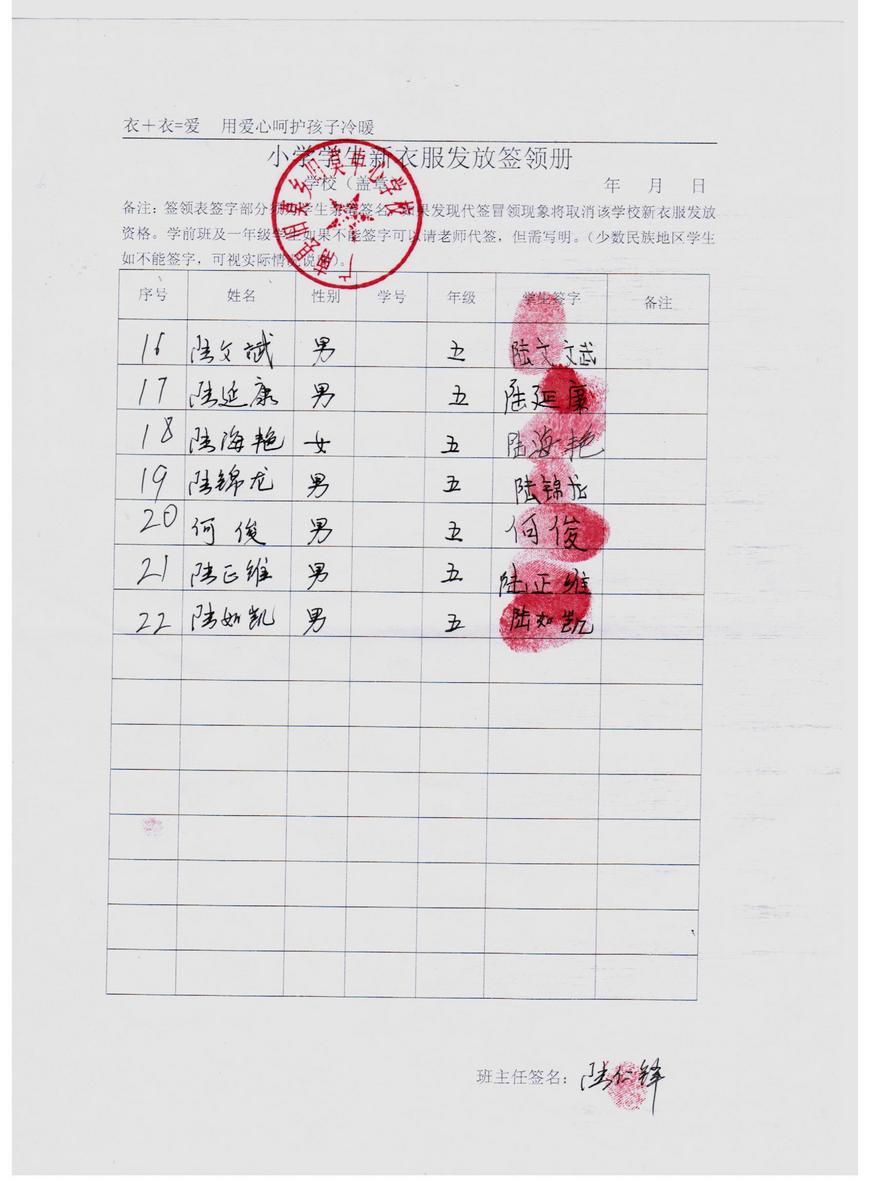 衣＋衣=爱 用爱心呵护孩子冷暖
小学学生新衣服发放签领册
学校（盖章） 年 月 日
备注：签领表签字部分须 学生亲笔签名，如果发现代签冒领现象将取消该学校新衣服发放
资格。学前班及一年级学生如果不能签字可以请老师代签，但需写明。（少数民族地区学生
如不能签字，可视实际情况说明）。
序号 姓名 性别 学号 年级 学生签字 备注
16 陆文斌 男 五 陆文文斌
17 陆延康 男 五 陆延康
18 陆海艳 女 五 陆海艳
19 陆锦龙 男 五 陆锦龙
20 何俊 男 五 何俊
21 陆正维 男 五 陆正维
22 陆如凯 男 五 陆如凯
班主任签名：陆仁锋